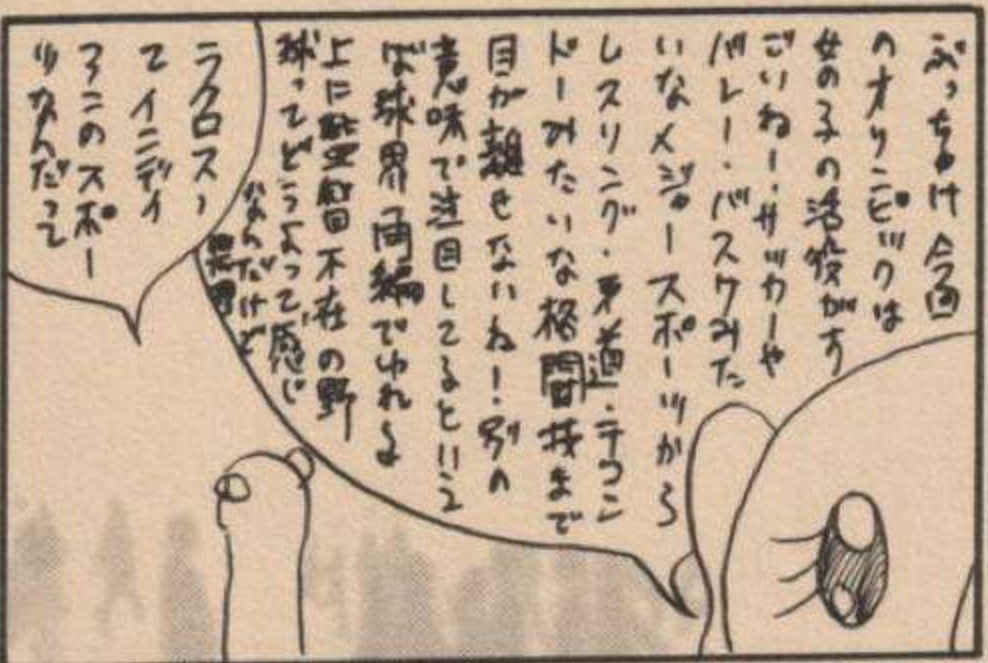 ぶっちゃけ今回
のオリンピックは
女の子の活役がす
ごいねー・サッカーや
バレー・バスケみた
いなメジャースポーツから
レスリング・柔道・テコン
ドーみたいな格闘技まで
目が離せないね！別の
意味で注目してるといえ
ば球界再編でゆれる
上に監督不在の野
球ってどうよって感じ
なんだけど
ラクロスっ
てインディ
アンのスポー
ツなんだって